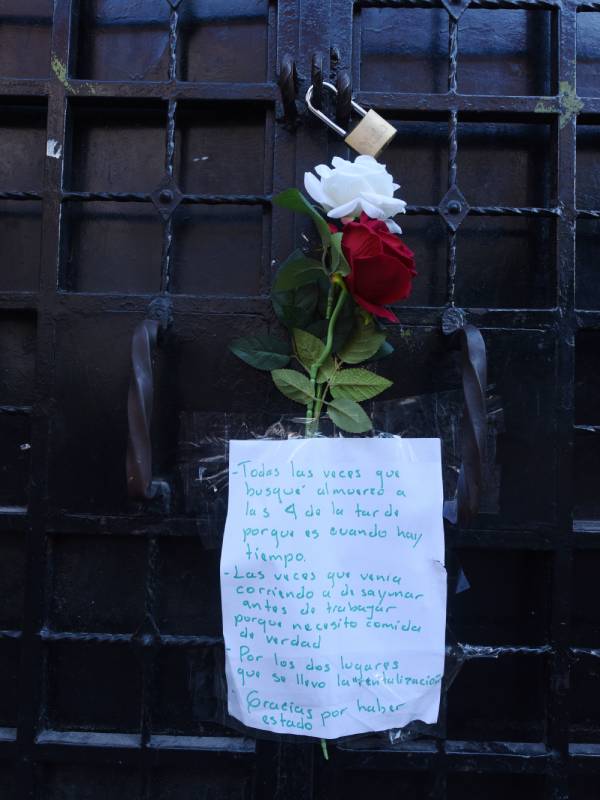 -Todas las veces que
busqué almuerzo a
las 4 de la tarde
porque es cuando hay
tiempo.
-Las veces que venia
corriendo a desayunar
antes de trabajar
porque necesito comida
de verdad
- Por los dos lugares
que se llevo la "rentalización
Gracias por haber
estado